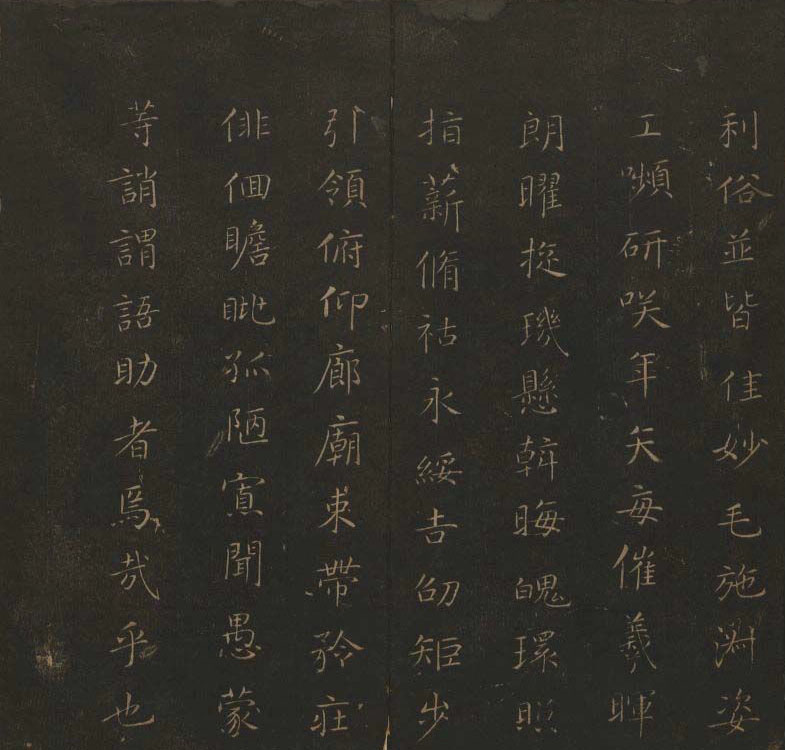 利俗並皆佳妙毛施淑姿
工嚬研咲年矢每催羲暉
朗曜旋璣懸斡晦魄環照
指薪脩祜永綏吉劭矩步
引領俯仰廊廟束帶矜莊
俳佪瞻眺孤陋寡聞愚蒙
等誚謂語助者焉哉乎也